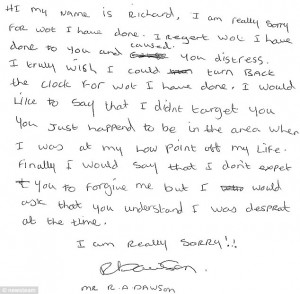 HI my name is Richard, I am really sorry
for wot I have done. I regert wot I have
done to you and caused you distress.
I truly wish I could turn back
the clock for wot I have done. I would
like to say that I didnt target you
you just happend to be in the area when
I was at my low point off my life.
Finally I would say that I don't expet
you to forgive me but I would
ask that you understand I was desprat
at the time.
I am really SORRY!!
RDawson.
MR R.A DAWSON